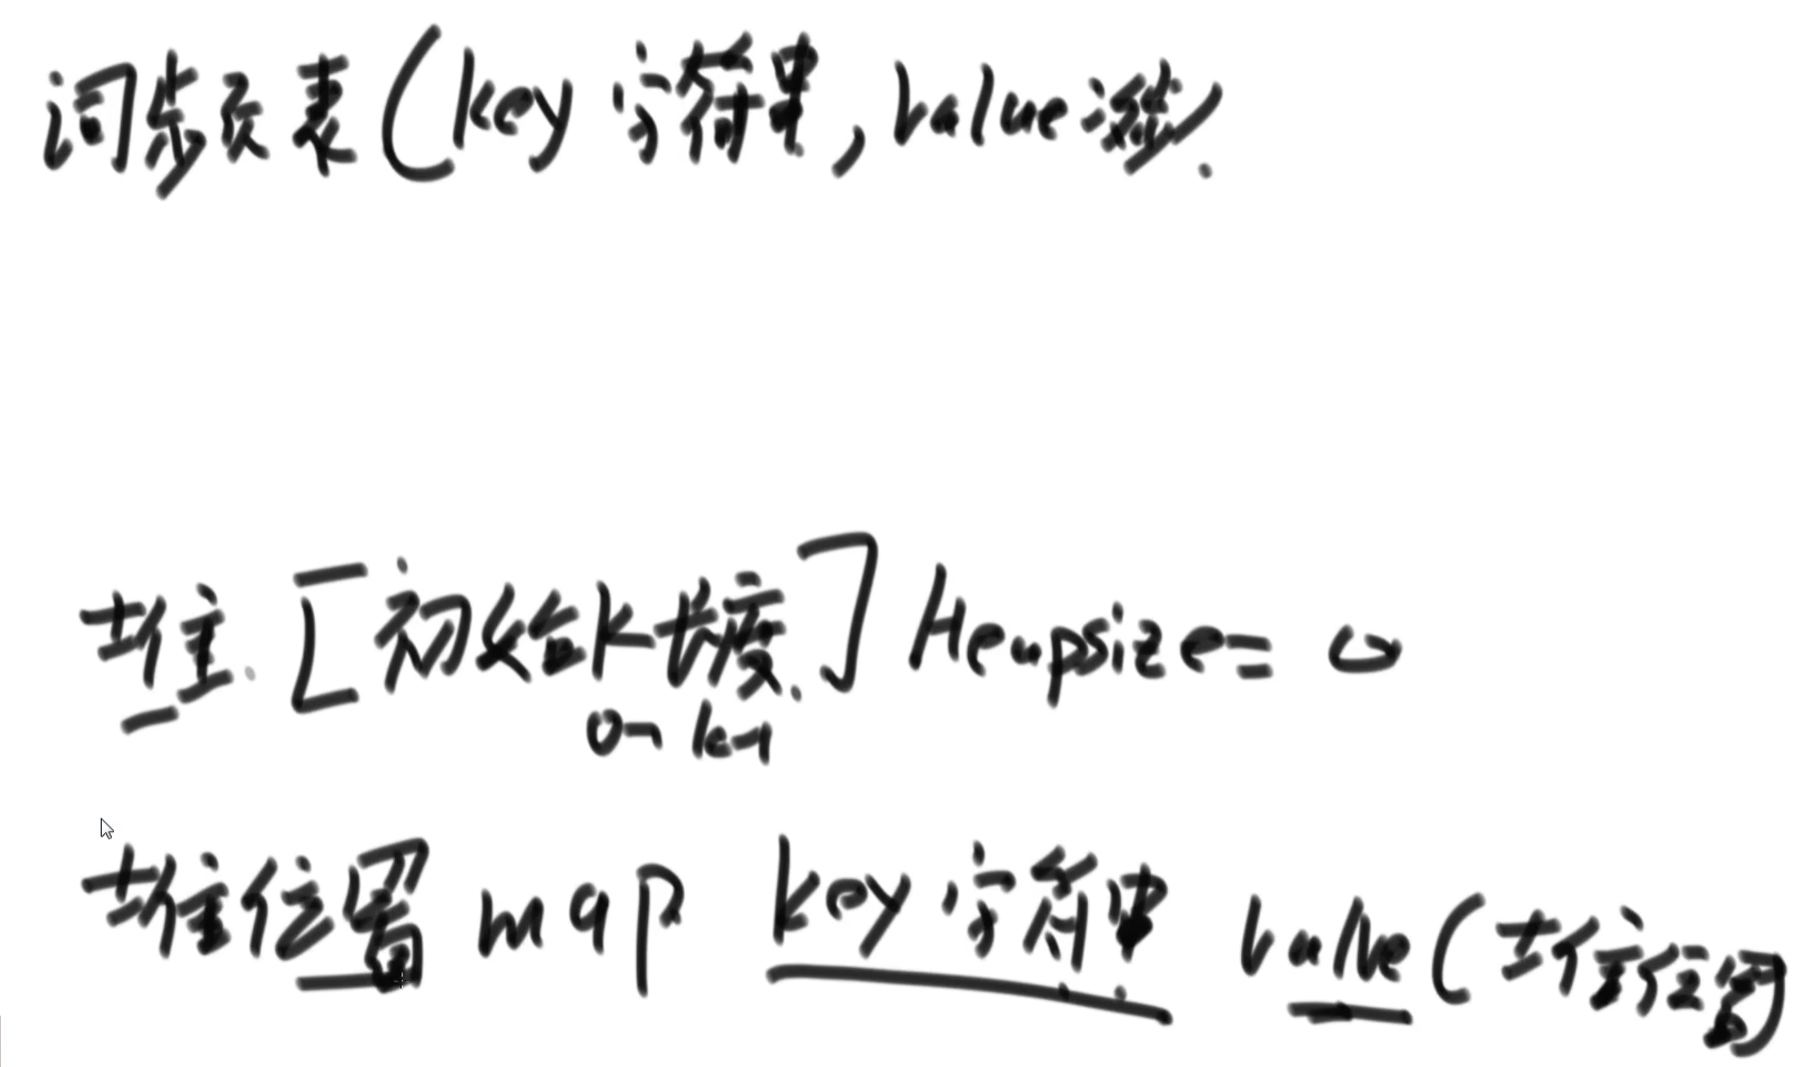 词频表(key 字符串, value 次数).
堆 [初始K长度.] Heapsize= 0
0~k-1
堆位置 map key 字符串 value(堆位置)